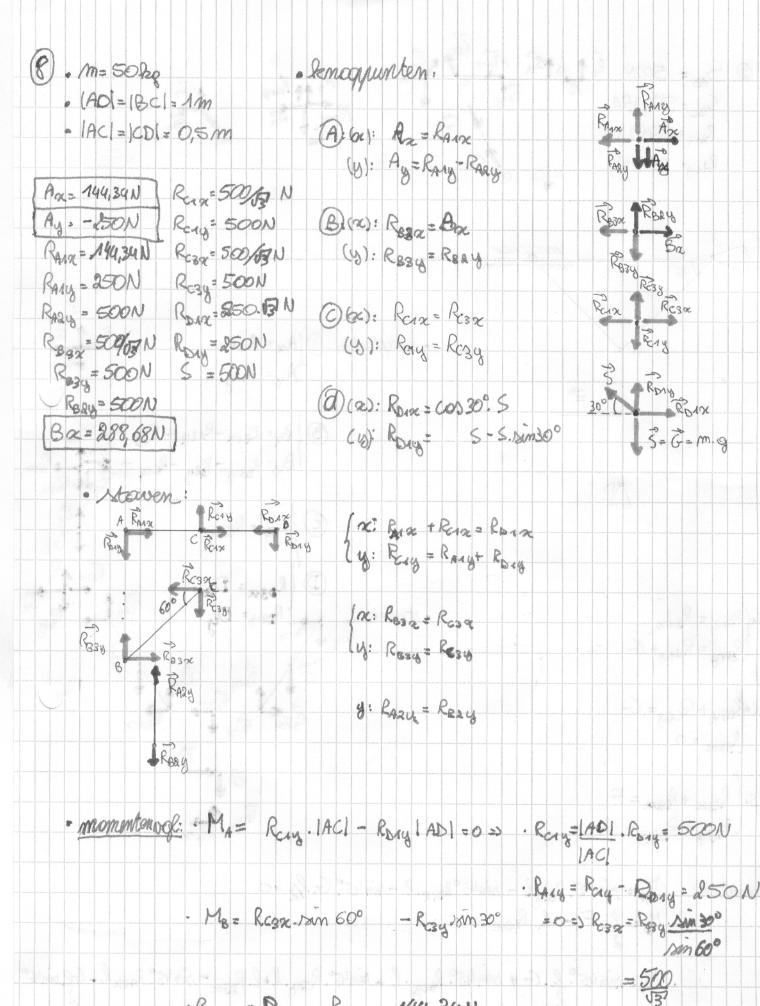 8
• m = 50kg
• |AD| = |BC| = 1m
• |AC| = |CD| = 0,5m
Ax = 144,34N
Ay = -250N
RA1x = 144,34N
RA1y = 250N
RA2y = 500N
RB3x = 500/√3 N
RB3y = 500N
RB2y = 500N
Bx = 288,68N
RC1x = 500/√3 N
RC1y = 500N
RC3x = 500/√3 N
RC3y = 500N
RD1x = 250.√3 N
RD1y = 250N
S = 500N
• knooppunten:
A (x): Ax = RA1x
(y): Ay = RA1y - RA2y
B (x): RB3x = Bx
(y): RB3y = RB2y
C (x): RC1x = RC3x
(y): RC1y = RC3y
d (x): RD1x = cos30°. S
(y): RD1y = S - S.sin30°
RA1y
RA1x Ax
RA2y Ay
RB2y
RB3x Bx
RB3y
RC3y
RC1x RC3x
RC1y
S RD1y
30° RD1x
S = G = m.g
• staven:
A RA1x C RC1y RC1x RD1x D RD1y
x: RA1x + RC1x = RD1x
y: RC1y = RA1y + RD1y
RC3x C
60° RC3y
RB3y
B RB3x
x: RB3x = RC3x
y: RB3y = RC3y
RA2y
y: RA2y = RB2y
RB2y
• momentenvgl: • MA = RC1y . |AC| - RD1y |AD| = 0 => • RC1y = |AD|/|AC| . RD1y = 500N
• RA1y = RC1y - RD1y = 250N
• MB = RC3x . sin 60° - RC3y sin 30° = 0 => RC3x = RC3y sin 30°/sin 60°
= 500/√3